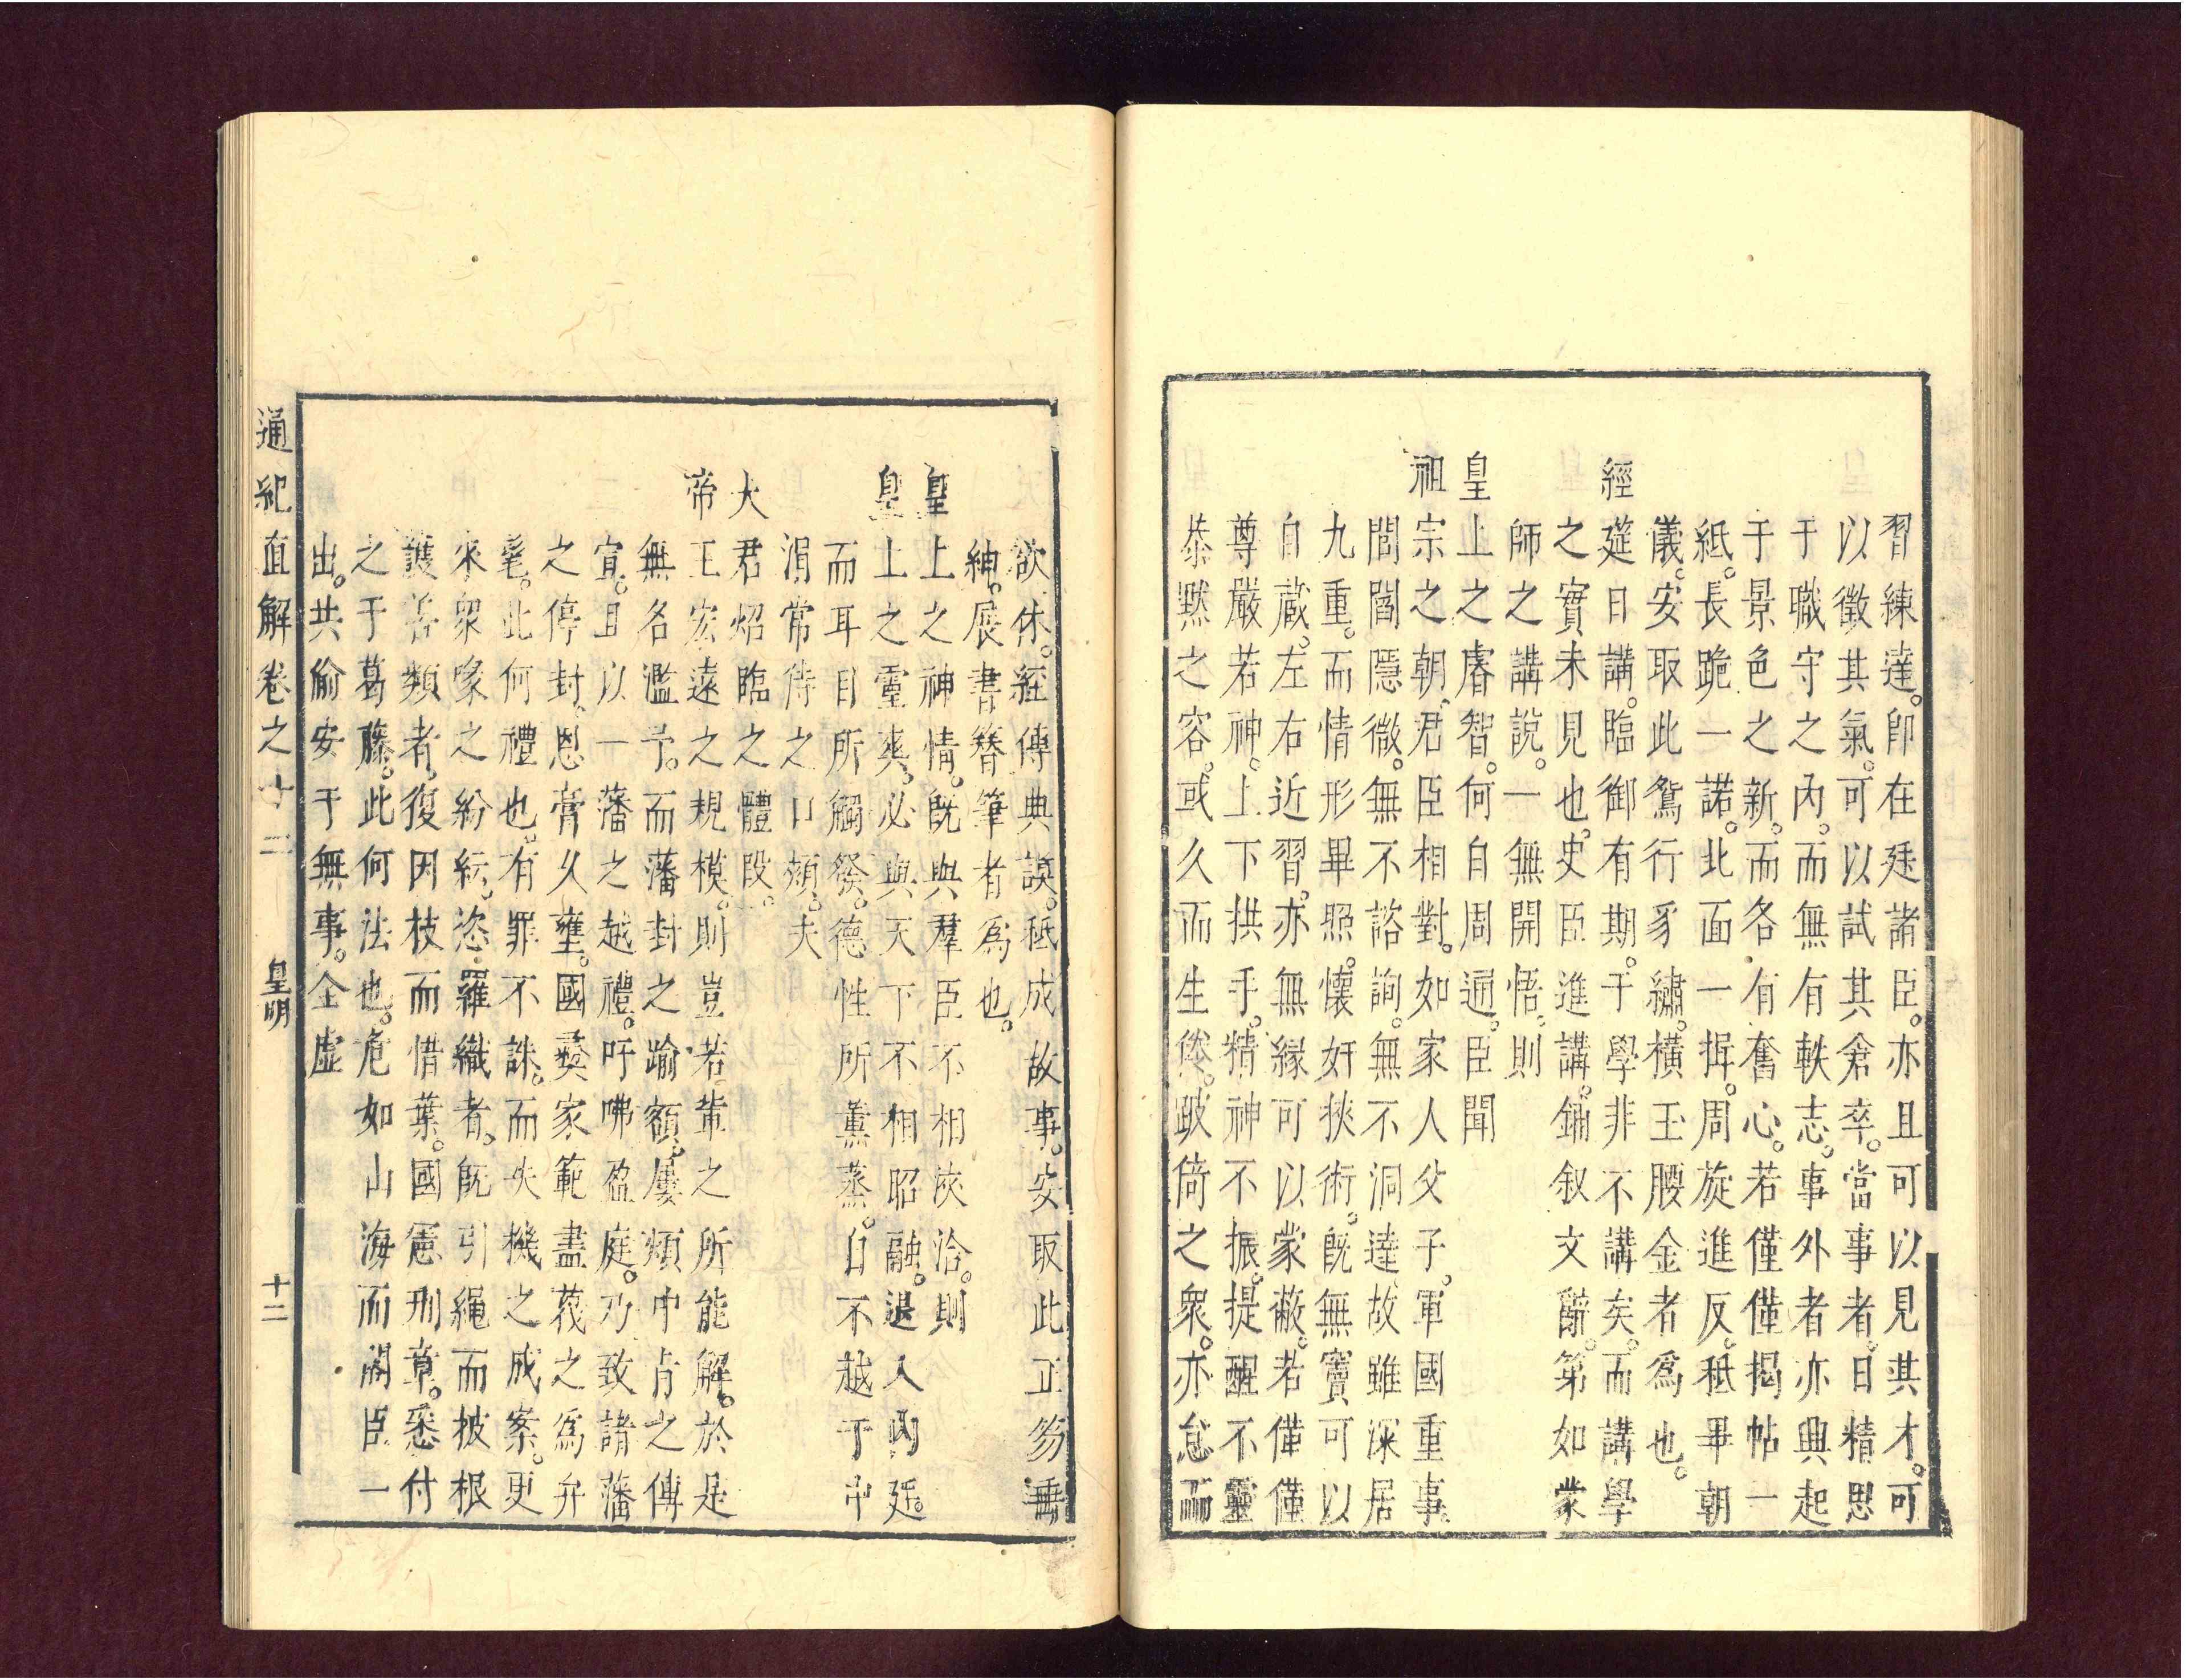 習練達。卽在廷諸臣。亦且可以見其才。可
以徵其氣。可以試其倉卒。當事者。日精思
于職守之內。而無有軼志。事外者亦典起
于景色之新。而各有奮心。若僅僅揭帖一
紙。長跪一諾。北面一揖。周旋進反。秪畢朝
儀。安取此鴛行豸繡。橫玉腰金者爲也。
經筵日講。臨御有期。于學非不講矣。而講學
之實未見也。史臣進講。鋪叙文辭。第如蒙
師之講說。一無開悟。則
皇上之睿智。何自周通。臣聞
祖宗之朝。君臣相對。如家人父子。軍國重事
閭閻隱微。無不諮詢。無不洞達故雖深居
九重。而情形畢照。懷奸挾術。旣無竇可以
自藏。左右近習。亦無緣可以蒙蔽。若僅僅
尊嚴若神。上下拱手。精神不振。提醒不靈
恭黙之容。或久而生倦。跛倚之衆。亦怠而
欲休。經傳典謨。秪成故事。安取此正笏垂
紳。展書簪筆者爲也。
皇上之神情。旣與羣臣不相浹洽。則
皇上之靈爽。必與天下不相昭融。退入內廷。
而耳目所觸發。德性所薰蒸。自不越于中
涓常侍之口頰。夫
大君炤臨之體段。
帝王宏遠之規模。則豈若輩之所能解。於是
無名濫予。而藩封之踰額。屢煩中旨之傳
宣。且以一藩之越禮。吁咈盈庭。乃致諸藩
之停封。恩膏久壅。國彛家範盡莪之爲弁
髦。此何禮也。有罪不誅。而失機之成案。更
來衆喙之紛紜。恣羅織者。旣引繩而披根
護善類者。復因枝而惜葉。國憲刑章。悉付
之于葛藤。此何法也。危如山海而閣臣一
出。共偷安于無事。全虛
通紀直解卷之十二 皇明 十二